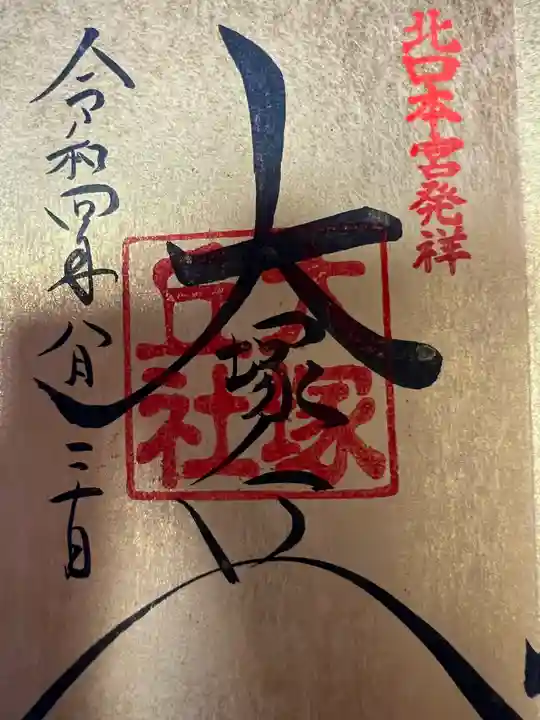 北口本宮発祥
大塚丘
大塚丘社
令和四年八月二十日